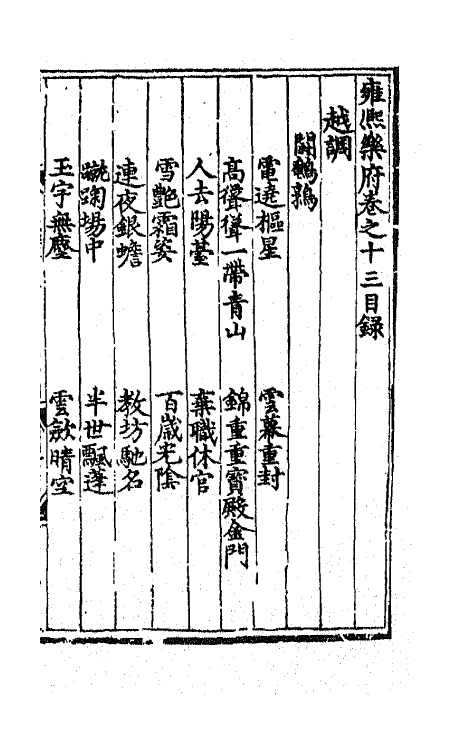 雍熙樂府卷之十三目録
越調
鬪鵪鶉
電遶樞星
雲幕重封
高聳聳一帶青山
錦重重寳殿金門
人去陽臺
棄職休官
雪艷霜姿
百歲光陰
連夜銀蟾
教坊馳名
蹴踘場中
半世飄蓬
玉宇無塵
雲歛晴空